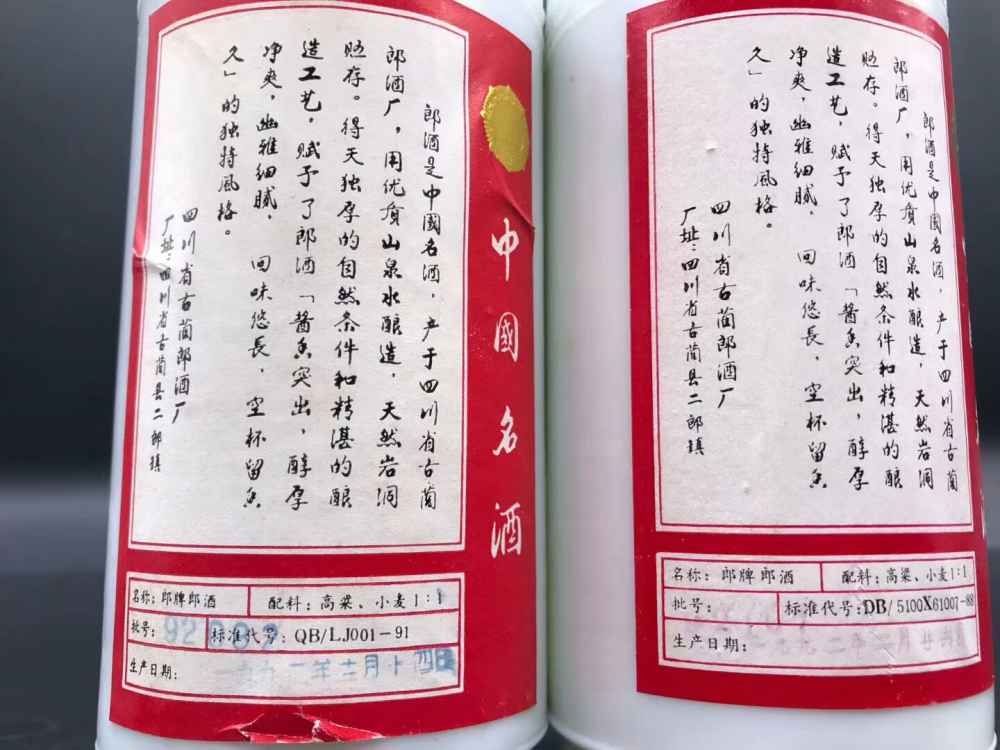 郎酒是中國名酒，产于四川省古蔺
郎酒厂，用优质山泉水酿造，天然岩洞
贮存。得天独厚的自然条件和精湛的酿
造工艺，赋予了郎酒「醬香突出，醇厚
净爽，幽雅细腻，回味悠長，空杯留香
久」的独特風格。
四川省古蔺郎酒厂
厂址：四川省古蔺县二郎镇
中國名酒
名称：郎牌郎酒 配料：高粱、小麦1：1
批号： 标准代号：QB/LJ001-91
生产日期： 年十二月十四日
郎酒是中國名酒，产于四川省古蔺
郎酒厂，用优质山泉水酿造，天然岩洞
贮存。得天独厚的自然条件和精湛的酿
造工艺，赋予了郎酒「醬香突出，醇厚
净爽，幽雅细腻，回味悠長，空杯留香
久」的独特風格。
四川省古蔺郎酒厂
厂址：四川省古蔺县二郎镇
名称：郎牌郎酒 配料：高粱、小麦1：1
批号： 标准代号：DB/5100X61007-88
生产日期： 九二年二月廿